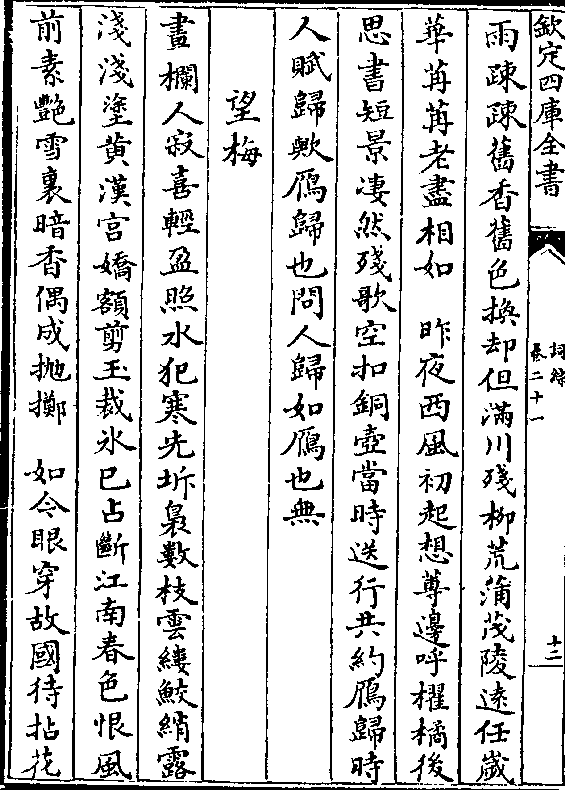 欽定四庫全書
詞綜
卷二十一
十二
雨踈踈舊香舊色換却但滿川殘栁荒蒲茂陵逺任嵗
華苒苒老盡相如　昨夜西風初起想蓴邊呼櫂橘後
思書短景凄然殘歌空扣銅壺當時送行共約鴈歸時
人賦歸歟鴈歸也問人歸如鴈也無
望梅
畫欄人寂喜輕盈照水犯寒先坼裊數枝雲縷鮫綃露
淺淺塗黄漢宫嬌額剪玉裁氷已占斷江南春色恨風
前素艶雪裏暗香偶成抛擲　如今眼穿故國待拈花